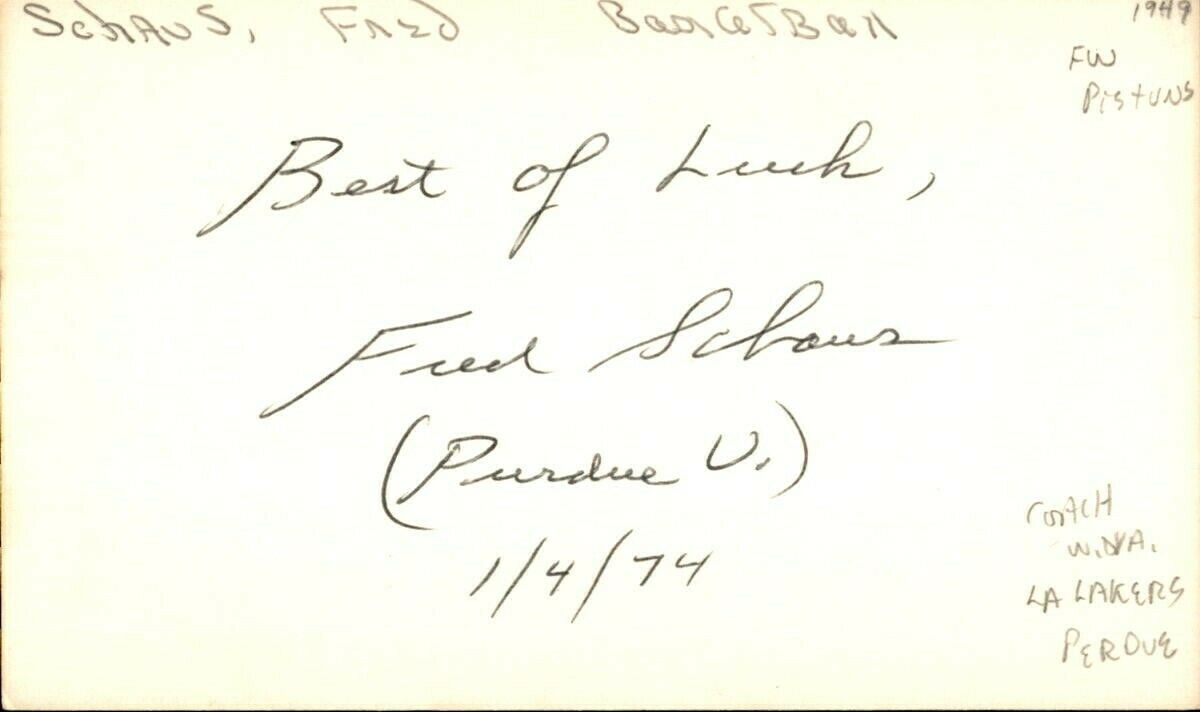 Schaus, Fred Basketball 1949
FW
Pistons
Best of Luck,
Fred Schaus
(Purdue U.)
1/4/74
COACH
W.VA.
LA LAKERS
PERDUE